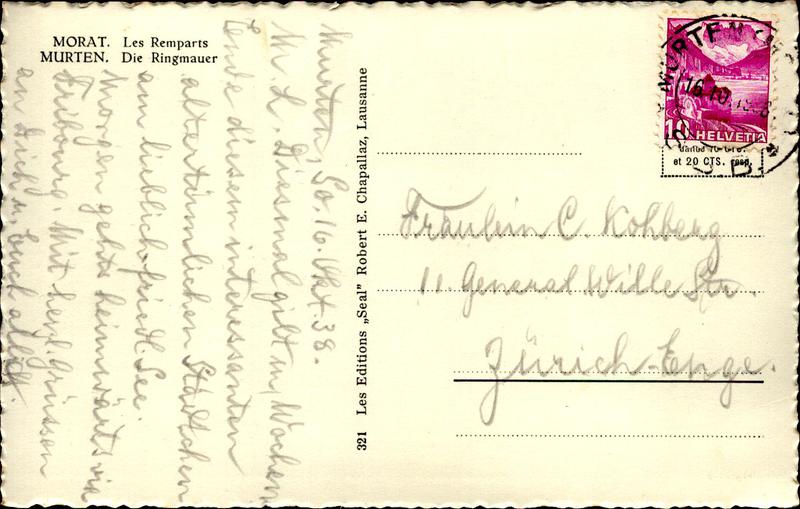 MORAT. Les Remparts
MURTEN. Die Ringmauer
Murten, So. 16. Okt. 38.
M. L. Diesmal gilt m. Wochen
Ende diesem interessanten
altertümlichen Städtchen
am lieblich-friedl. See.
Morgen gehts heimwärts via
Fribourg. Mit herzl. Grüssen
an Dich u. Euch alle
321 Les Editions „Seal" Robert E. Chapallaz, Lausanne
MURTEN
16.10.
10 HELVETIA
et 20 CTS.
Fräulein C. Kohberg
11. General Wille Str.
Zürich-Enge.